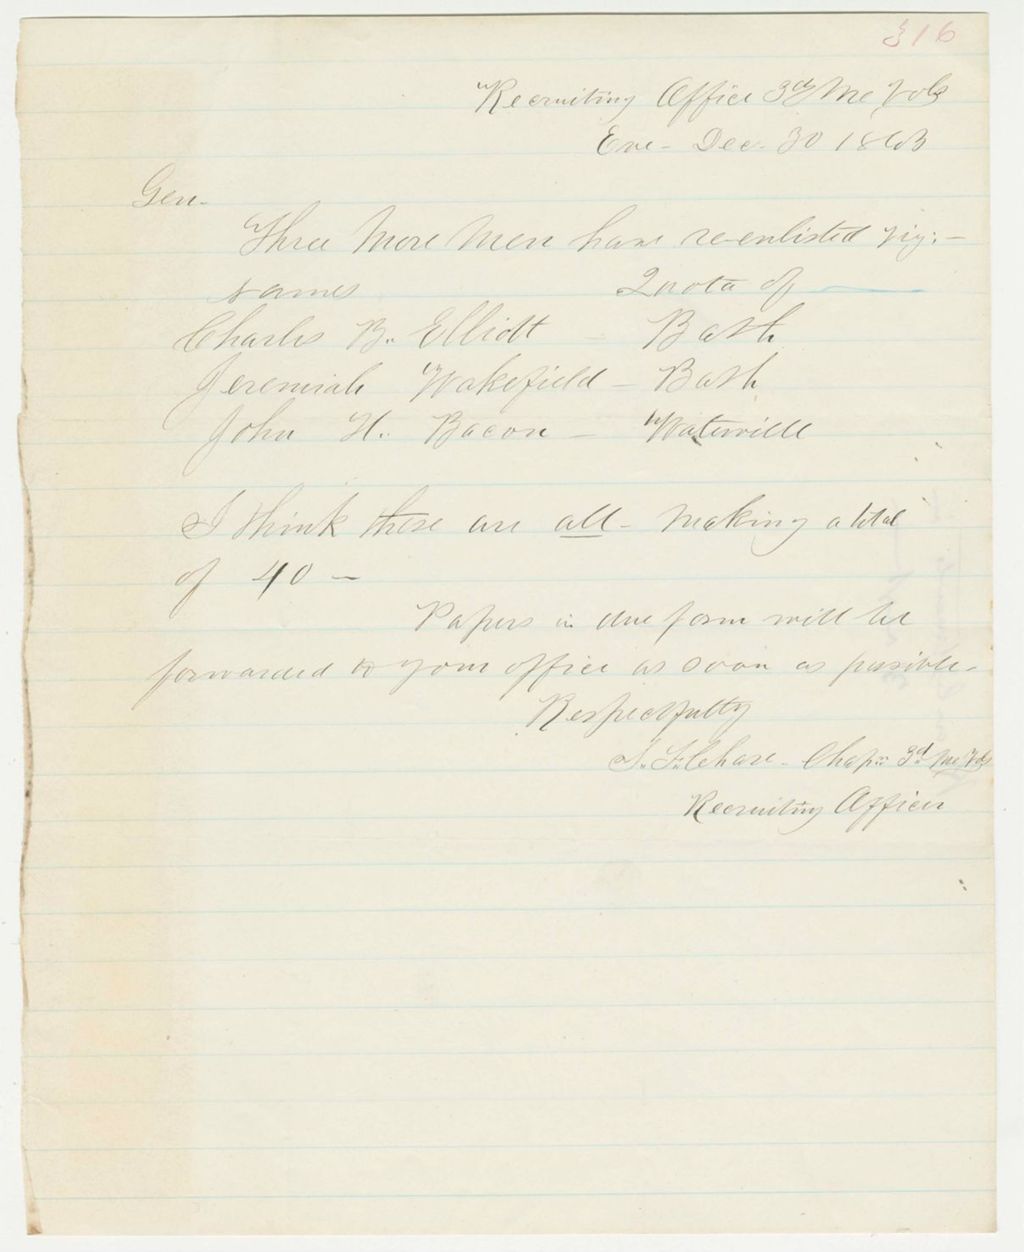 316
Recruiting Office 3d Me Vols
Eve - Dec. 30 1863
Gen.
Three More Men have re-enlisted viz: -
Names Quota of
Charles B. Elliott - Bath
Jeremiah Wakefield - Bath
John H. Bacon - Waterville
I think these are all - making a total
of 40 -
Papers in due form will be
forwarded to your office as soon as possible.
Respectfully
S. F. Chase - Chap: 3d Me Vols
Recruiting Officer